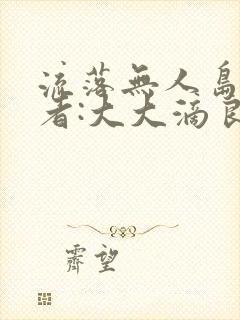 流落無人島
者:大大滴良
霽望